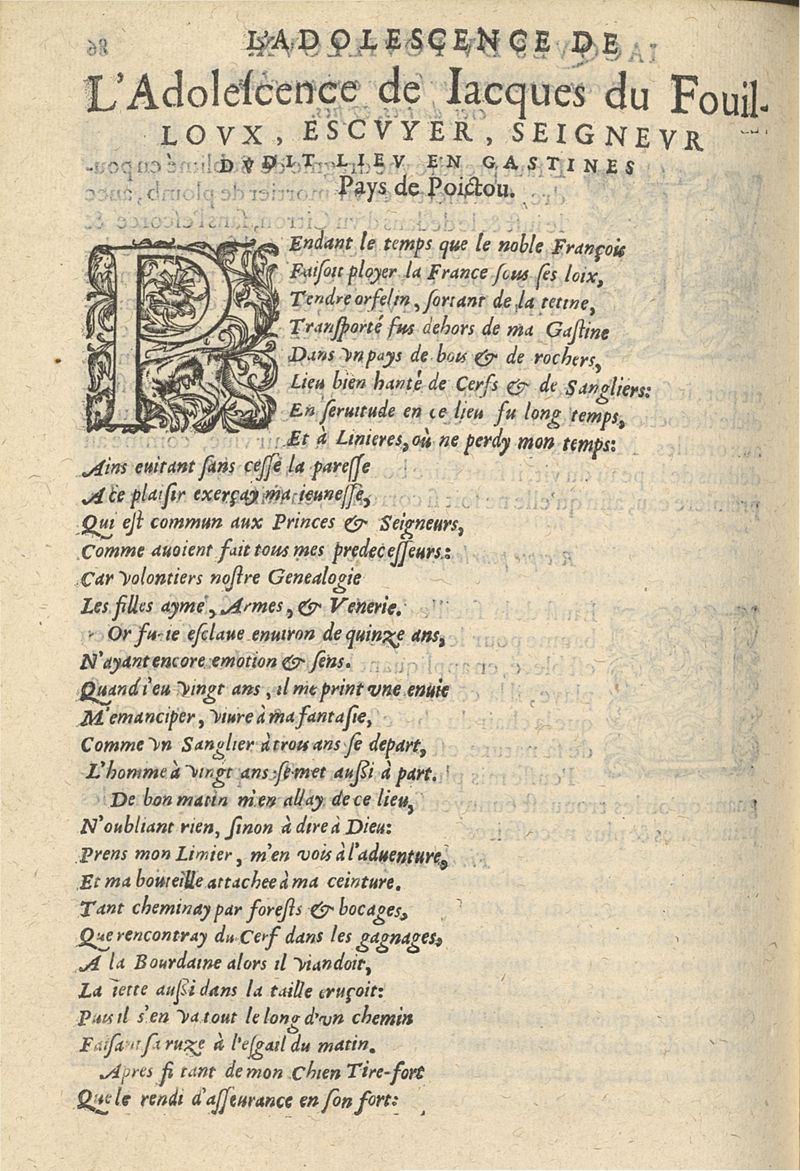 L'ADOLESCENCE DE
L'Adoleſcence de Iacques du Fouil-
LOVX, ESCVYER, SEIGNEVR
DVDIT LIEV EN GASTINES
Pays de Poictou.
PEndant le temps que le noble François
Faiſoit ployer la France ſous ſes loix,
Tendre orfelin, ſortant de la tetine,
Tranſporté fus dehors de ma Gaſtine
Dans vn pays de bois & de rochers,
Lieu bien hanté de Cerfs & de Sangliers:
En ſeruitude en ce lieu fu long temps,
Et à Linieres, où ne perdy mon temps:
Ains euitant ſans ceſſe la pareſſe
A ce plaiſir exerçay ma ieuneſſe,
Qui eſt commun aux Princes & Seigneurs,
Comme auoient fait tous mes predeceſſeurs:
Car volontiers noſtre Genealogie
Les filles ayme, Armes, & Venerie.
Or fu-ie eſclaue enuiron de quinze ans,
N'ayant encore emotion & ſens.
Quand i'eu vingt ans, il me print vne enuie
M'emanciper, viure à ma fantaſie,
Comme vn Sanglier à trois ans ſe depart,
L'homme à vingt ans ſe met auſſi à part.
De bon matin m'en allay de ce lieu,
N'oubliant rien, ſinon à dire à Dieu:
Prens mon Limier, m'en vois à l'aduenture,
Et ma bouteille attachee à ma ceinture.
Tant cheminay par foreſts & bocages,
Que rencontray du Cerf dans les gagnages,
A la Bourdaine alors il viandoit,
La iette auſſi dans la taille cruçoit:
Puis il s'en va tout le long d'vn chemin
Faiſant ſa ruze à l'eſgail du matin.
Apres fi tant de mon Chien Tire-fort
Que le rendi d'aſſeurance en ſon fort: